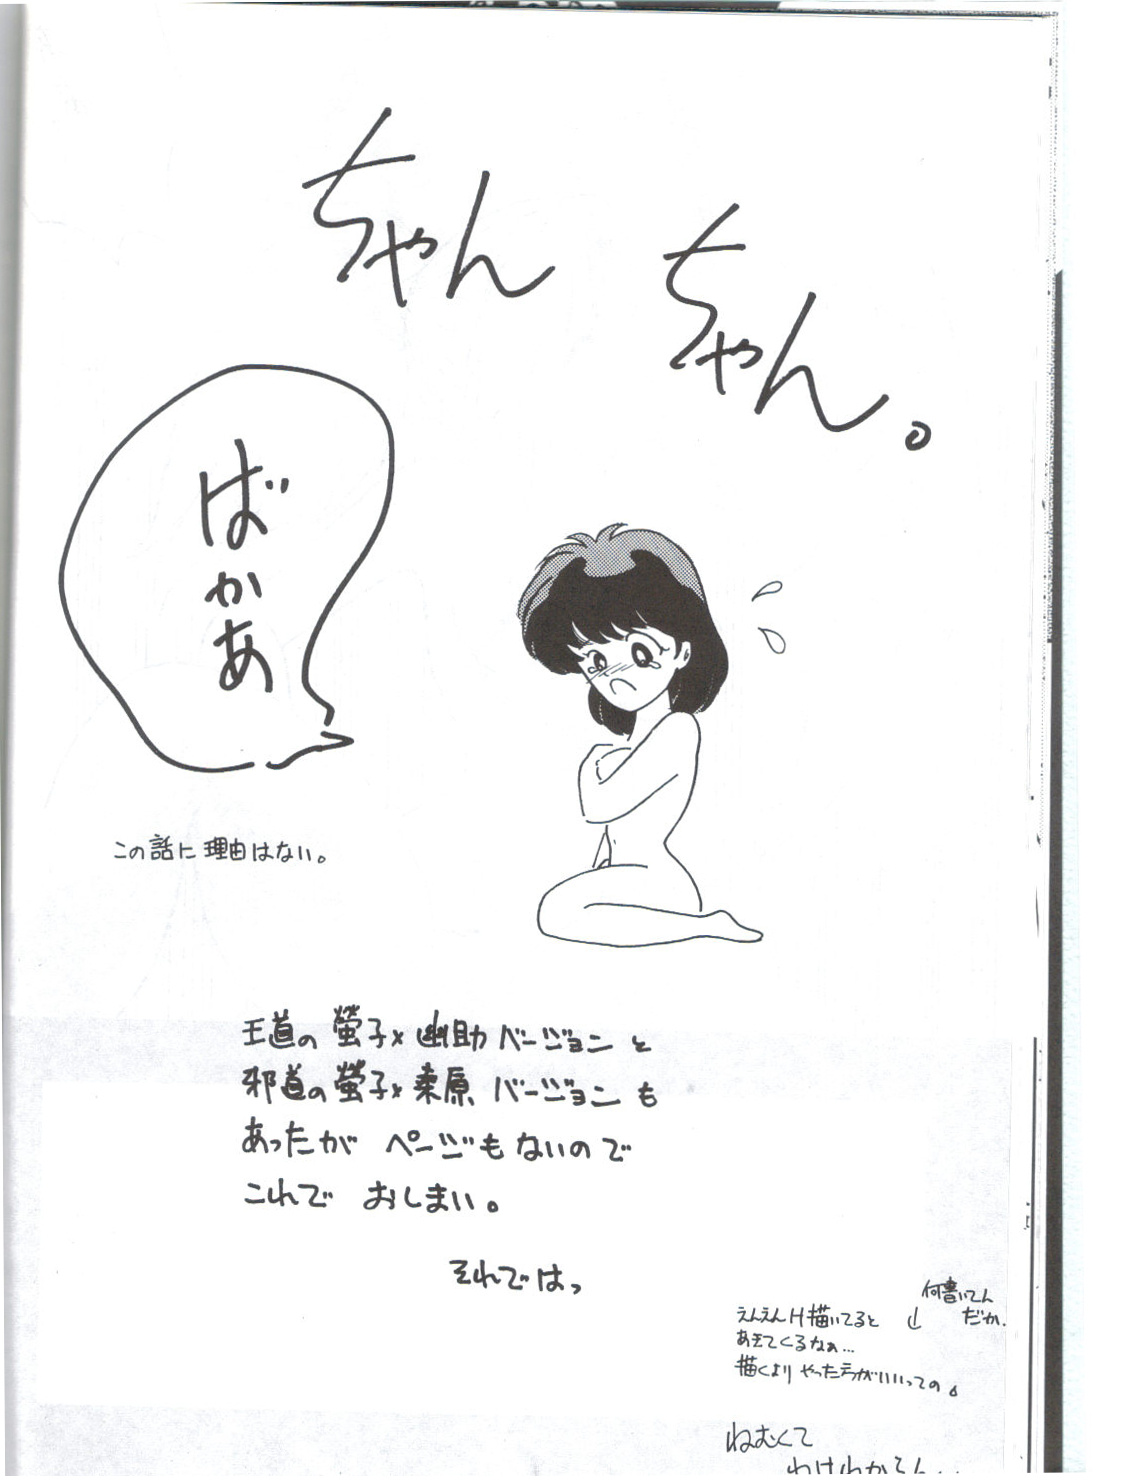 ちゃん
ちゃん。
ばかあ
この話に理由はない。
王道の螢子×幽助バージョンと
邪道の螢子×桑原バージョンも
あったが ページもないので
これで おしまい。
それではっ
何書いてん
だか。
↓
えんえんH描いてると
あきてくるなぁ…
描くより やった方がいいっての。
ねむくて
わけわからん…